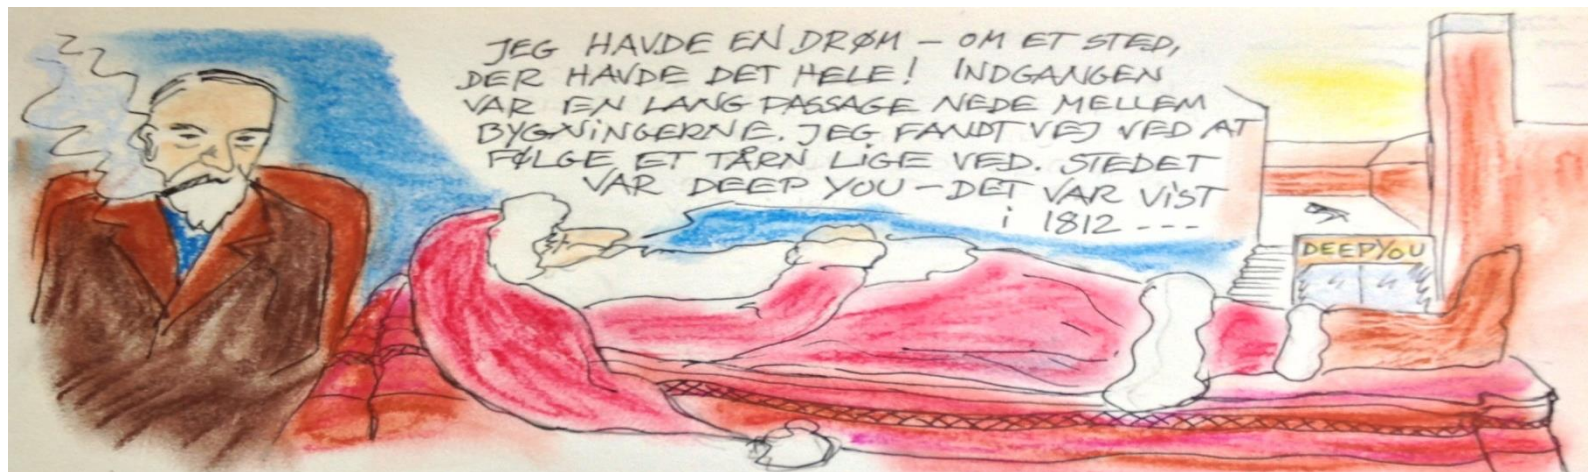 JEG HAVDE EN DRØM – OM ET STED,
DER HAVDE DET HELE! INDGANGEN
VAR EN LANG PASSAGE NEDE MELLEM
BYGNINGERNE. JEG FANDT VEJ VED AT
FØLGE ET TÅRN LIGE VED. STEDET
VAR DEEP YOU – DET VAR VIST
i 1812 ---
DEEPYOU